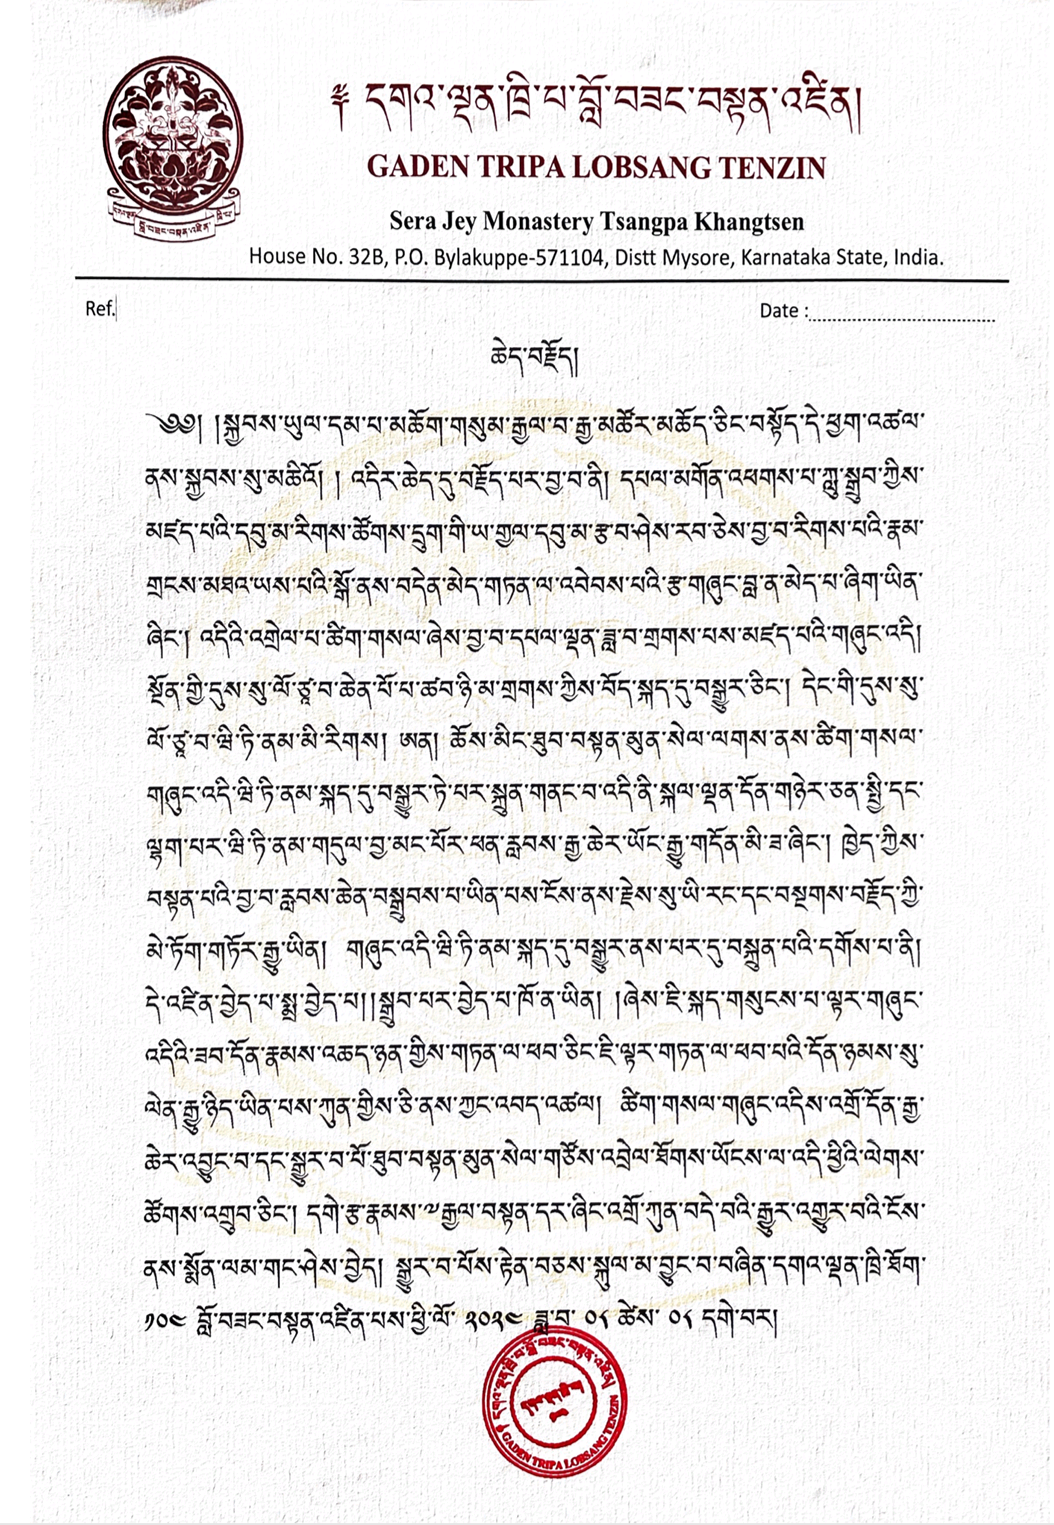 ༈ དགའ་ལྡན་ཁྲི་པ་བློ་བཟང་བསྟན་འཛིན།
GADEN TRIPA LOBSANG TENZIN
Sera Jey Monastery Tsangpa Khangtsen
House No. 32B, P.O. Bylakuppe-571104, Distt Mysore, Karnataka State, India.
དགའ་ལྡན་ ཁྲི་པ་
བློ་བཟང་བསྟན་འཛིན་
Ref.
Date :
ཆེད་བརྗོད།
༄༅། །སྐྱབས་ཡུལ་དམ་པ་མཆོག་གསུམ་རྒྱལ་བ་རྒྱ་མཚོར་མཆོད་ཅིང་བསྟོད་དེ་ཕྱག་འཚལ་
ནས་སྐྱབས་སུ་མཆིའོ། ། འདིར་ཆེད་དུ་བརྗོད་པར་བྱ་བ་ནི། དཔལ་མགོན་འཕགས་པ་ཀླུ་སྒྲུབ་ཀྱིས་
མཛད་པའི་དབུ་མ་རིགས་ཚོགས་དྲུག་གི་ཡ་གྱལ་དབུ་མ་རྩ་བ་ཤེས་རབ་ཅེས་བྱ་བ་རིགས་པའི་རྣམ་
གྲངས་མཐའ་ཡས་པའི་སྒོ་ནས་བདེན་མེད་གཏན་ལ་འབེབས་པའི་རྩ་གཞུང་བླ་ན་མེད་པ་ཞིག་ཡིན་
ཞིང་། འདིའི་འགྲེལ་པ་ཚིག་གསལ་ཞེས་བྱ་བ་དཔལ་ལྡན་ཟླ་བ་གྲགས་པས་མཛད་པའི་གཞུང་འདི།
སྔོན་གྱི་དུས་སུ་ལོ་ཙཱ་བ་ཆེན་པོ་པ་ཚབ་ཉི་མ་གྲགས་ཀྱིས་བོད་སྐད་དུ་བསྒྱུར་ཅིང་། དེང་གི་དུས་སུ་
ལོ་ཙཱ་བ་ཝི་ཏི་ནམ་མི་རིགས། ཨན། ཆོས་མིང་ཐུབ་བསྟན་མུན་སེལ་ལགས་ནས་ཚིག་གསལ་
གཞུང་འདི་ཝི་ཏི་ནམ་སྐད་དུ་བསྒྱུར་ཏེ་པར་སྐྲུན་གནང་བ་འདི་ནི་སྐལ་ལྡན་དོན་གཉེར་ཅན་སྤྱི་དང་
ལྷག་པར་ཝི་ཏི་ནམ་གདུལ་བྱ་མང་པོར་ཕན་རླབས་རྒྱ་ཆེར་ཡོང་རྒྱུ་གདོན་མི་ཟ་ཞིང་། ཁྱེད་ཀྱིས་
བསྟན་པའི་བྱ་བ་རླབས་ཆེན་བསྒྲུབས་པ་ཡིན་པས་ངོས་ནས་རྗེས་སུ་ཡི་རང་དང་བསྔགས་བརྗོད་ཀྱི་
མེ་ཏོག་གཏོར་རྒྱུ་ཡིན། གཞུང་འདི་ཝི་ཏི་ནམ་སྐད་དུ་བསྒྱུར་ནས་པར་དུ་བསྐྲུན་པའི་དགོས་པ་ནི།
དེ་འཛིན་བྱེད་པ་སྨྲ་བྱེད་པ།།སྒྲུབ་པར་བྱེད་པ་ཁོ་ན་ཡིན། །ཞེས་ཇི་སྐད་གསུངས་པ་ལྟར་གཞུང་
འདིའི་ཟབ་དོན་རྣམས་འཆད་ཉན་གྱིས་གཏན་ལ་ཕབ་ཅིང་ཇི་ལྟར་གཏན་ལ་ཕབ་པའི་དོན་ཉམས་སུ་
ལེན་རྒྱུ་ཉིད་ཡིན་པས་ཀུན་གྱིས་ཅི་ནས་ཀྱང་འབད་འཚལ། ཚིག་གསལ་གཞུང་འདིས་འགྲོ་དོན་རྒྱ་
ཆེར་འབྱུང་བ་དང་སྒྱུར་བ་པོ་ཐུབ་བསྟན་མུན་སེལ་གཙོས་འབྲེལ་ཐོགས་ཡོངས་ལ་འདི་ཕྱིའི་ལེགས་
ཚོགས་འགྲུབ་ཅིང་། དགེ་རྩ་རྣམས་༧རྒྱལ་བསྟན་དར་ཞིང་འགྲོ་ཀུན་བདེ་བའི་རྒྱུར་འགྱུར་བའི་ངོས་
ནས་སྨོན་ལམ་གང་ཤེས་བྱེད། སྒྱུར་བ་པོས་རྟེན་བཅས་སྐུལ་མ་བྱུང་བ་བཞིན་དགའ་ལྡན་ཁྲི་ཐོག་
༡༠༤ བློ་བཟང་བསྟན་འཛིན་པས་ཕྱི་ལོ་ ༢༠༢༤ ཟླ་བ་ ༠༨ ཚེས་ ༠༨ དགེ་བར།
དགའ་ལྡན་ཁྲི་པ་བློ་བཟང་བསྟན་འཛིན།
GADEN TRIPA LOBSANG TENZIN